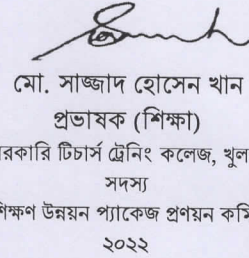 মো. সাজ্জাদ হোসেন খান
প্রভাষক (শিক্ষা)
রকারি টিচার্স ট্রেনিং কলেজ, খুল
সদস্য
শিক্ষণ উন্নয়ন প্যাকেজ প্রণয়ন কমি
২০২২